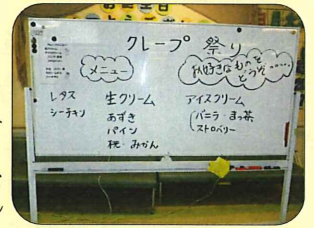 クレープ 祭り
メニュー
お好きなものを
どうぞ……
レタス
シーチキン
生クリーム
あずき
パイン
桃・みかん
アイスクリーム
バニラ・まっ茶
ストロベリー